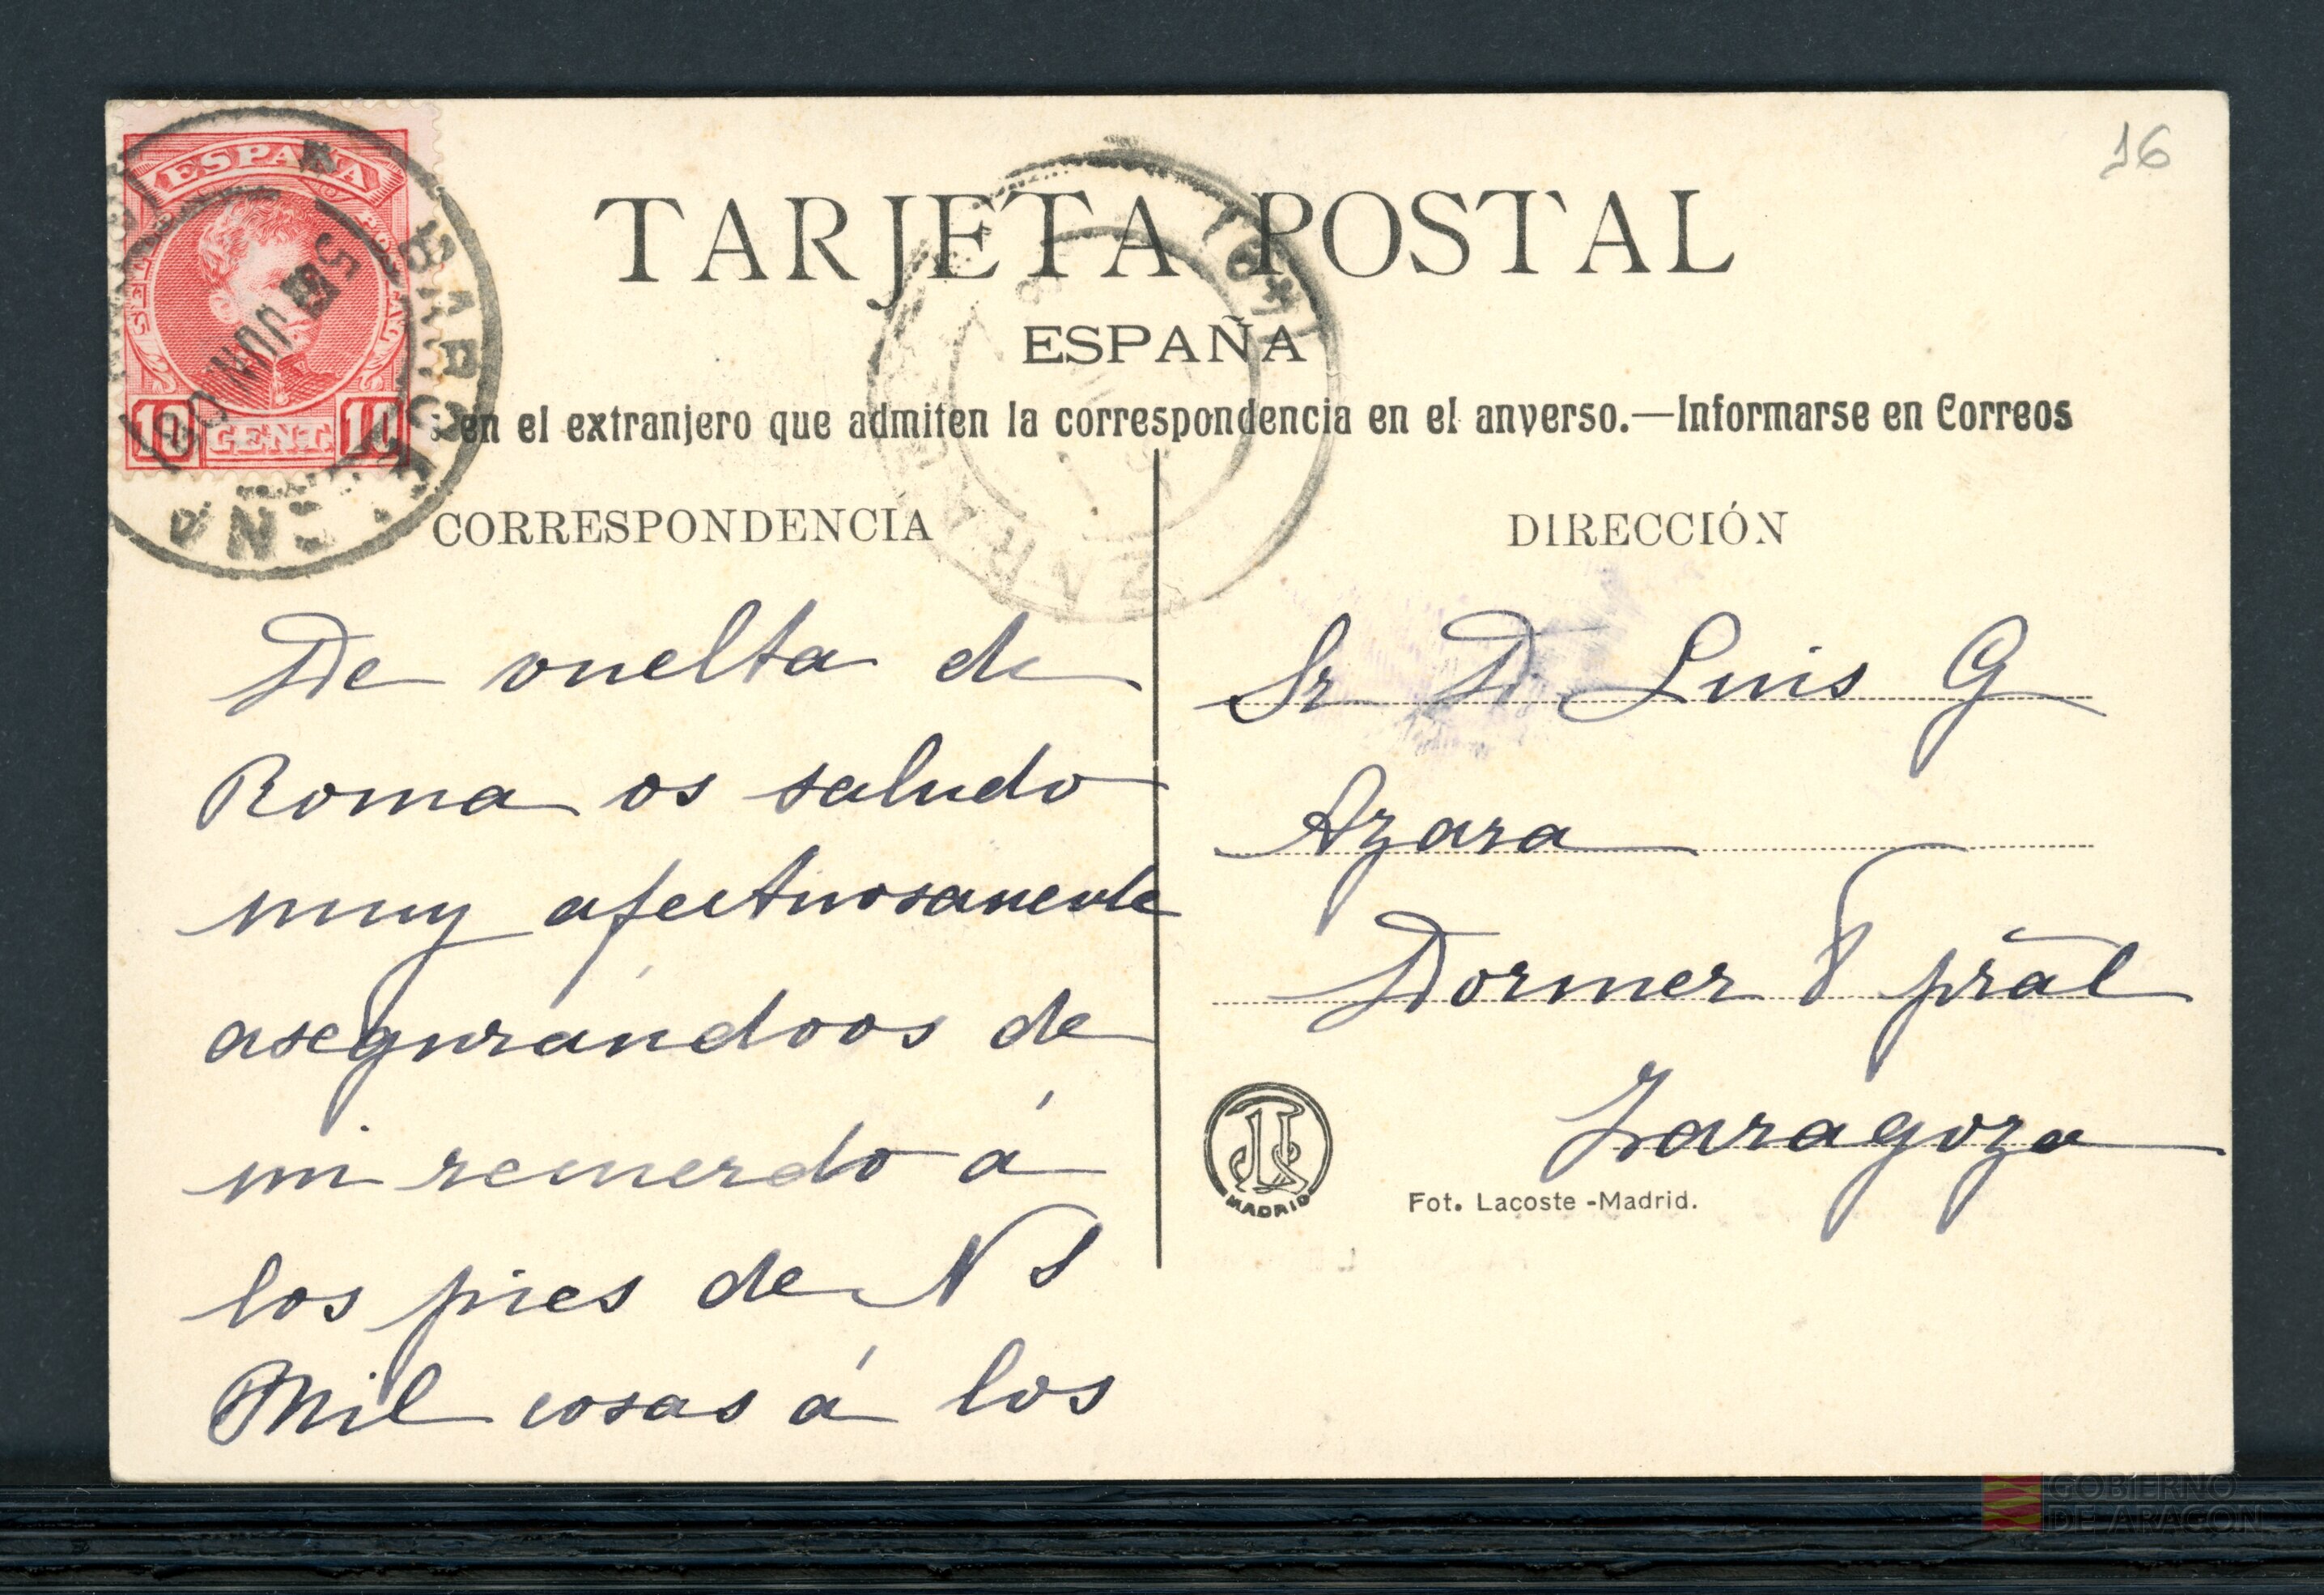 16
ESPAÑA
10 CENT. 10
BARCELONA
5 JUN 08
TARJETA POSTAL
ESPAÑA
en el extranjero que admiten la correspondencia en el anverso.—Informarse en Correos
CORRESPONDENCIA
De vuelta de
Roma os saludo
muy afectuosamente
asegurándoos de
mi recuerdo á
los pies de N S
Mil cosas á los
DIRECCIÓN
Sr D. Luis G
Azara
Dormer 8 pral
Zaragoza
MADRID
Fot. Lacoste -Madrid.
GOBIERNO
DE ARAGON